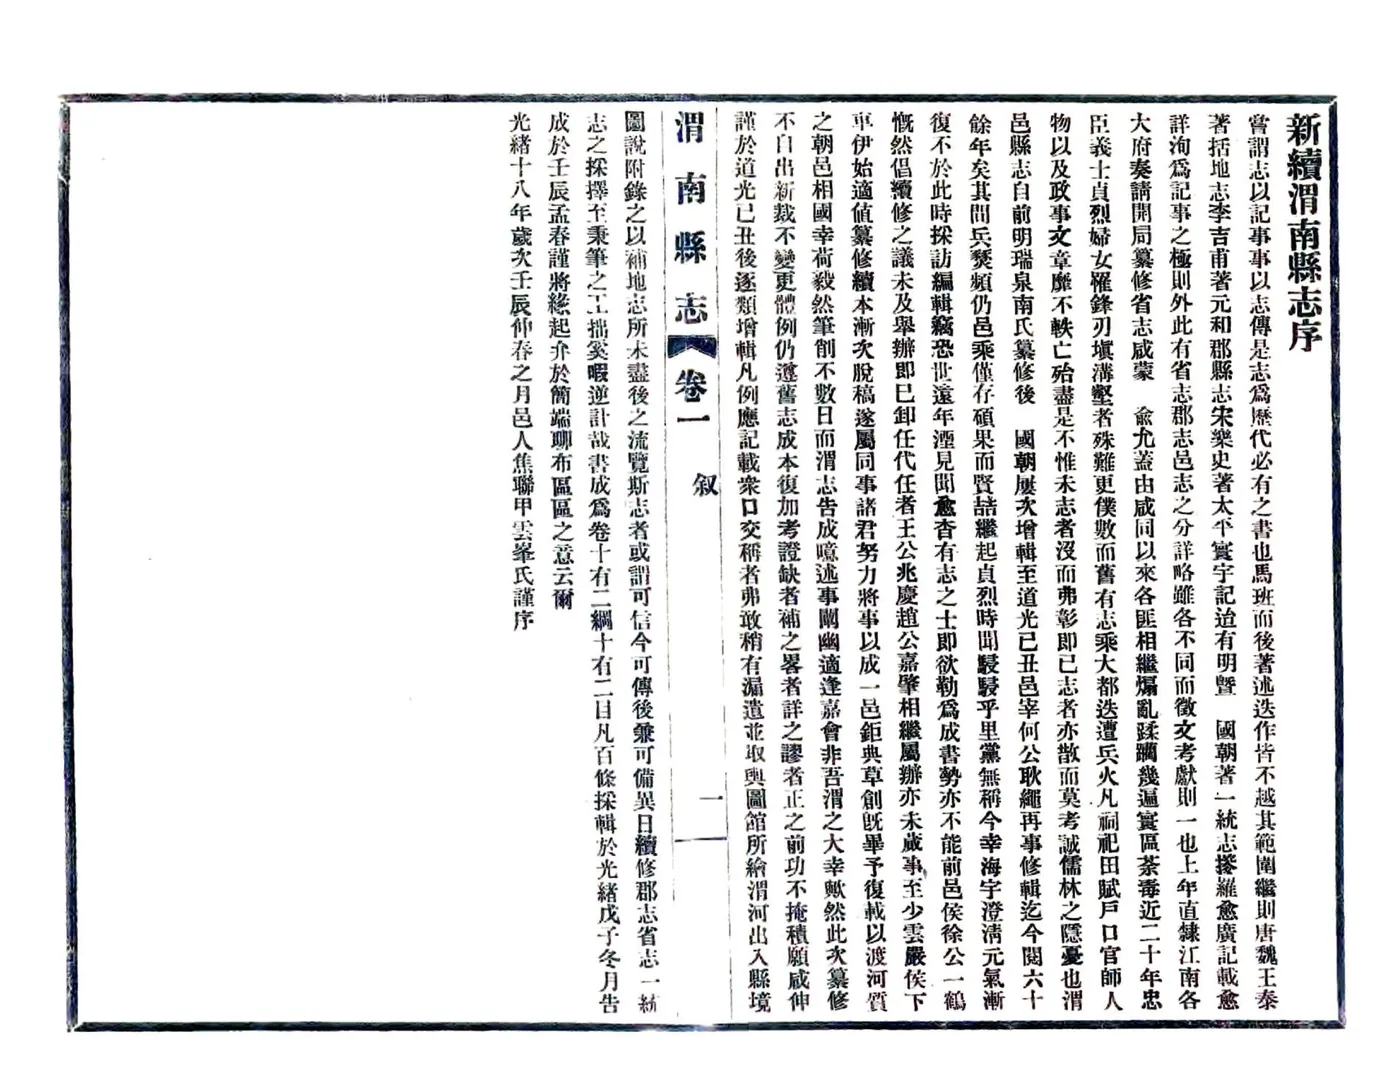 新續渭南縣志序
嘗謂志以記事事以志傳是志爲歷代必有之書也馬班而後著述迭作皆不越其範圍繼則唐魏王泰
著括地志李吉甫著元和郡縣志宋樂史著太平寰宇記迨有明曁　國朝著一統志搜羅愈廣記載愈
詳洵爲記事之極則外此有省志郡志邑志之分詳略雖各不同而徵文考獻則一也上年直隸江南各
大府奏請開局纂修省志咸蒙　俞允蓋由咸同以來各匪相繼煽亂蹂躪幾遍寰區荼毒近二十年忠
臣義士貞烈婦女罹鋒刃塡溝壑者殊難更僕數而舊有志乘大都迭遭兵火凡祠祀田賦戶口官師人
物以及政事文章靡不軼亡殆盡是不惟未志者沒而弗彰即已志者亦散而莫考誠儒林之隱憂也渭
邑縣志自前明瑞泉南氏纂修後　國朝屢次增輯至道光己丑邑宰何公耿繩再事修輯迄今閱六十
餘年矣其間兵燹頻仍邑乘僅存碩果而賢喆繼起貞烈時聞駸駸乎里黨無稱今幸海宇澄淸元氣漸
復不於此時採訪編輯竊恐世遠年湮見聞愈杳有志之士即欲勒爲成書勢亦不能前邑侯徐公一鶴
慨然倡續修之議未及舉辦即已卸任代任者王公兆慶趙公嘉肇相繼屬辦亦未蕆事至少雲嚴侯下
車伊始適值纂修續本漸次脫稿遂屬同事諸君努力將事以成一邑鉅典草創旣畢予復載以渡河質
之朝邑相國幸荷毅然筆削不數日而渭志告成噫述事闡幽適逢嘉會非吾渭之大幸歟然此次纂修
不自出新裁不變更體例仍遵舊志成本復加考證缺者補之畧者詳之謬者正之前功不掩積願咸伸
謹於道光己丑後逐類增輯凡例應記載衆口交稱者弗敢稍有漏遺並取輿圖館所繪渭河出入縣境
渭南縣志　卷一　叙　一
圖說附錄之以補地志所未盡後之流覽斯志者或謂可信今可傳後兼可備異日續修郡志省志一統
志之採擇至秉筆之工拙奚暇逆計哉書成爲卷十有二綱十有二目凡百條採輯於光緒戊子冬月告
成於壬辰孟春謹將緣起弁於簡端聊布區區之意云爾
光緒十八年歲次壬辰仲春之月邑人焦聯甲雲峯氏謹序